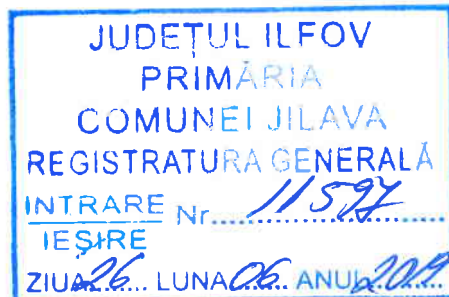 JUDEȚUL ILFOV
PRIMĂRIA
COMUNEI JILAVA
REGISTRATURA GENERALĂ
INTRARE Nr.....11597.....
IEȘIRE
ZIUA 26... LUNA 06... ANUL 2019...